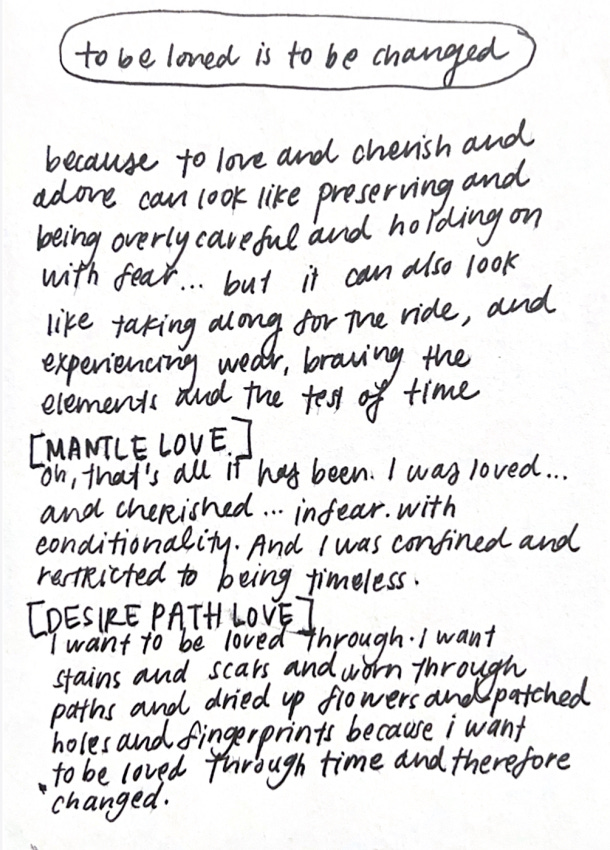 to be loved is to be changed
because to love and cherish and
adore can look like preserving and
being overly careful and holding on
with fear... but it can also look
like taking along for the ride, and
experiencing wear, braving the
elements and the test of time
[MANTLE LOVE.]
Oh, that's all it has been. I was loved...
and cherished... in fear. with
conditionality. And I was confined and
restricted to being timeless.
[DESIRE PATH LOVE]
I want to be loved through. I want
stains and scars and worn through
paths and dried up flowers and patched
holes and fingerprints because i want
to be loved through time and therefore
changed.